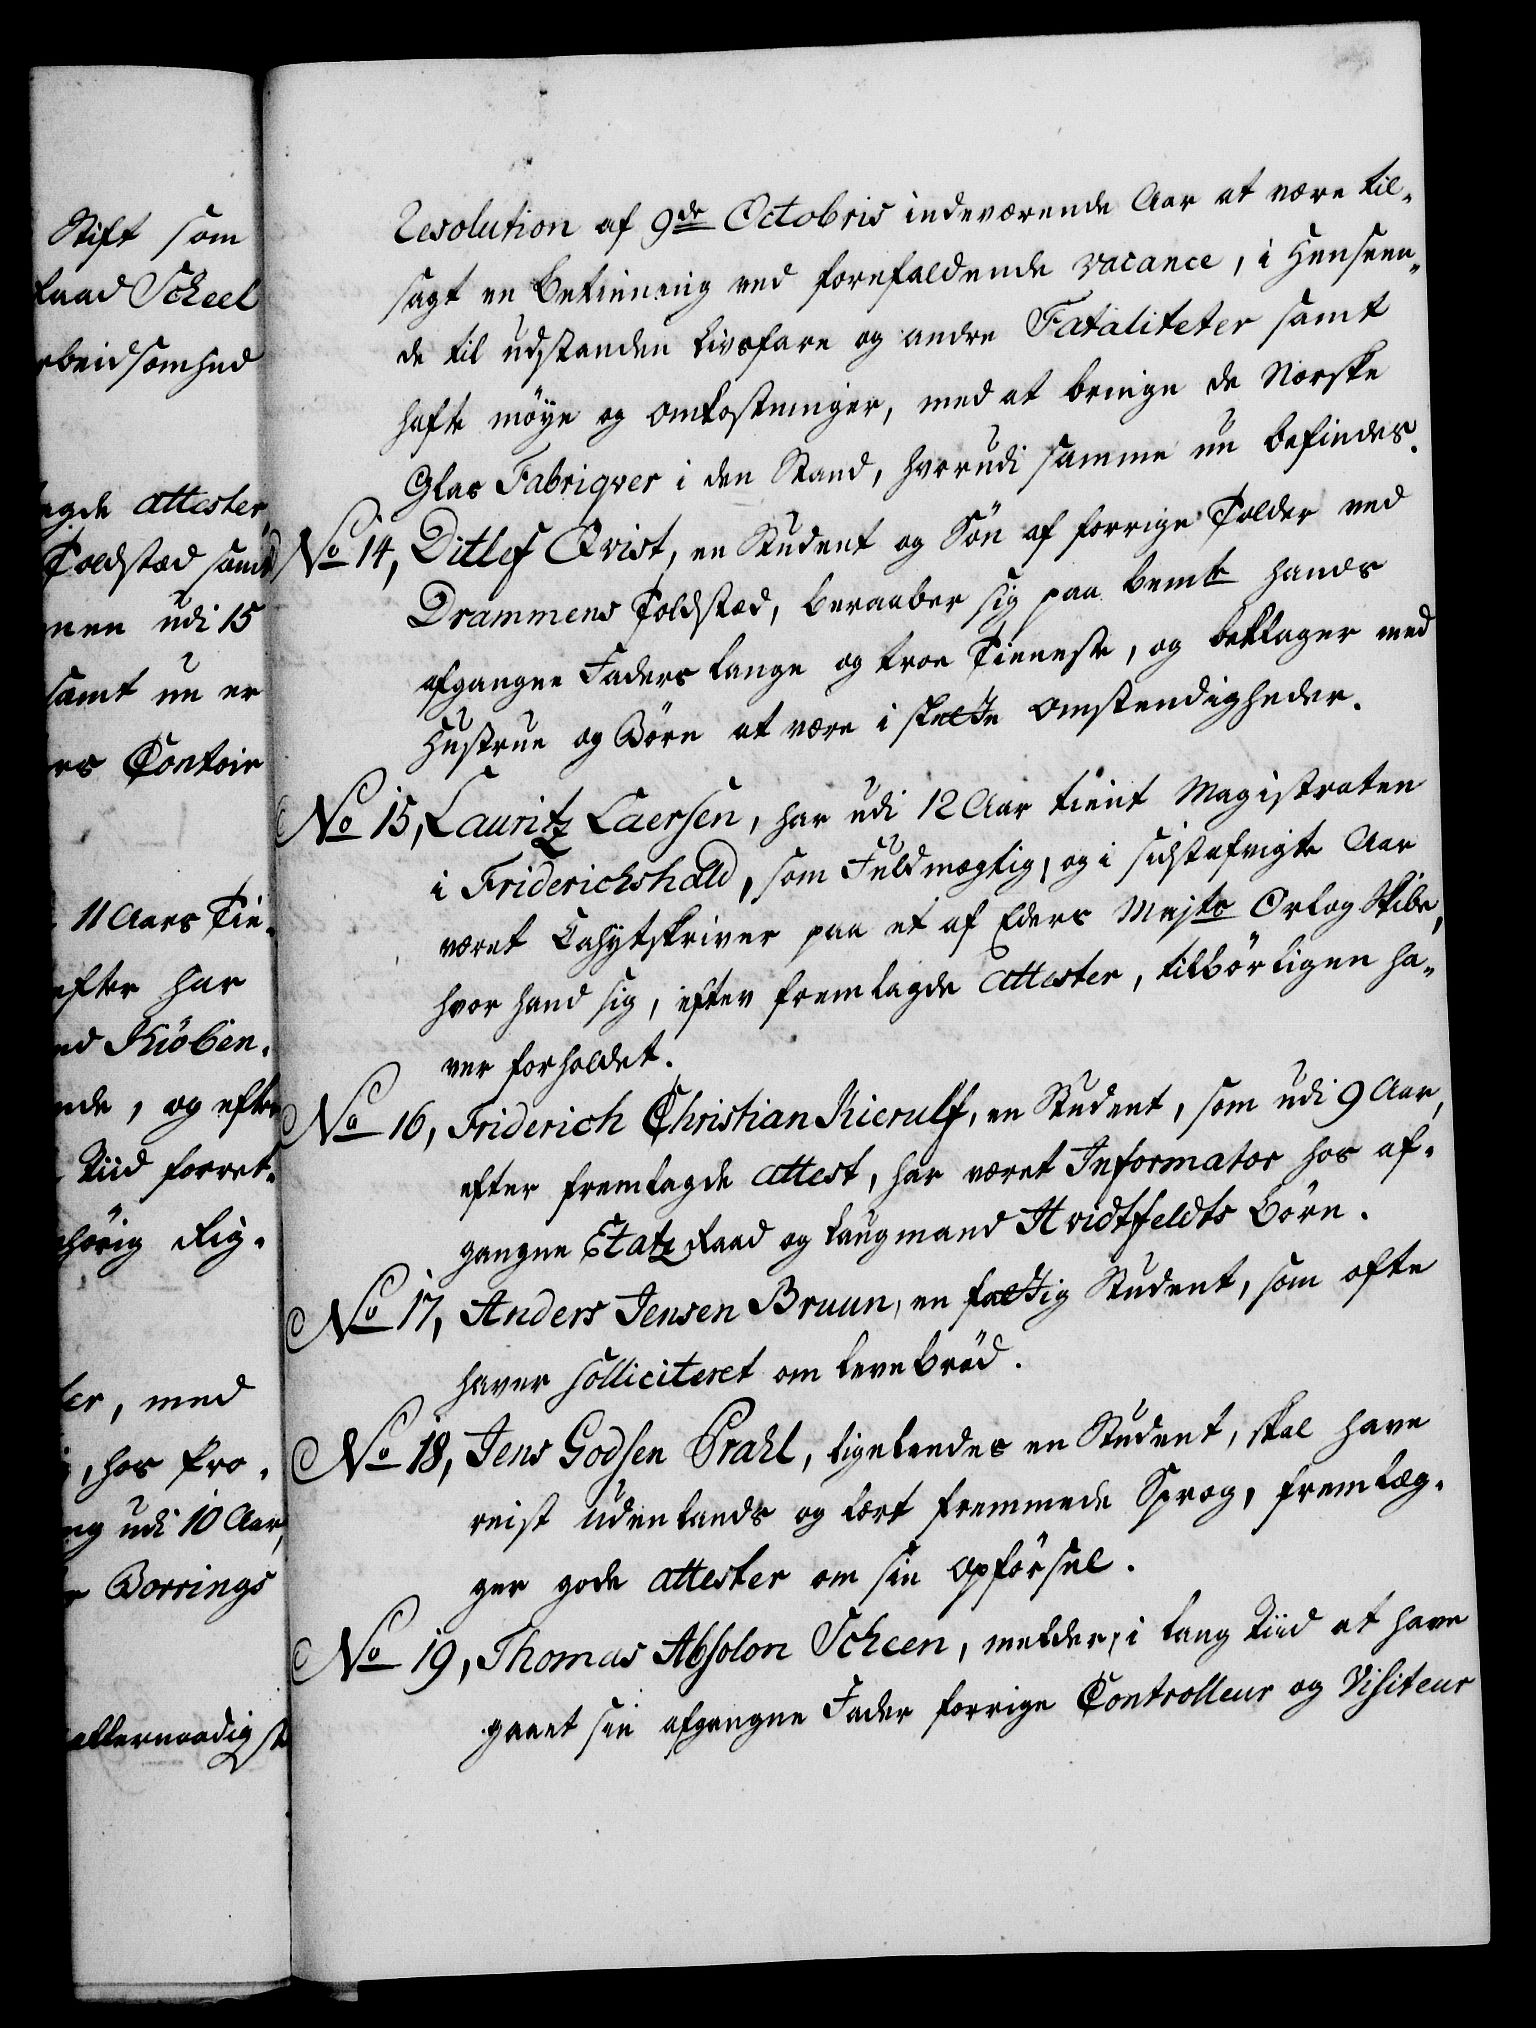 Stift som
Raad Scheel
rbeidsomhed
egde attester,
Toldstæd samt
nen udi 15
samt nu er
ers Contoir
11 Aars Tie-
efter har
ed Kiöben-
nde, og efter
Tiid forret-
hörig Rig-
ler, med
, hos Pro-
ng udi 10 Aar,
r Borrings
allernaadigst
Resolution af 9de Octobris indeværende Aar at være til-
sagt en Betiening ved forefaldende vacance, i Henseen-
de til udstanden Livsfare og andre Fataliteter samt
hafte möye og omkostninger, med at bringe de Norske
Glas Fabriqver i den Stand, hvorudi samme nu befindes.
No 14, Ditlef Qvist, en Student og Sön af forrige Tolder ved
Drammens Toldstæd, beraaber sig paa bemte hands
afgangne Faders lange og troe Tieneste, og beklager med
Hustrue og Börn at være i slette omstendigheder.
No 15, Lauritz Laersen, har udi 12 Aar tient Magistraten
i Friderichshald, som Fuldmægtig, og i sidstafvigte Aar
været Cahytskriver paa et af Eders Majts Orlog Skibe,
hvor hand sig, efter fremlagde attester, tilbörligen ha-
ver forholdet.
No 16, Friderich Christian Kierulf, en Student, som udi 9 Aar,
efter fremlagde attest, har været Informator hos af-
gangne Etatz Raad og Laugmand Hvidtfeldts Börn.
No 17, Anders Jensen Bruun, en fattig Student, som ofte
haver solliciteret om levebröd.
No 18, Jens Godsen Prahl, ligeledes en Student, skal have
reist udenlands og lært fremmede Sprog, fremlæg-
ger gode attester om sin opförsel.
No 19, Thomas Absolon Scheen, melder, i lang Tiid at have
gaaet sin afgangne Fader forrige Controlleur og Visiteur